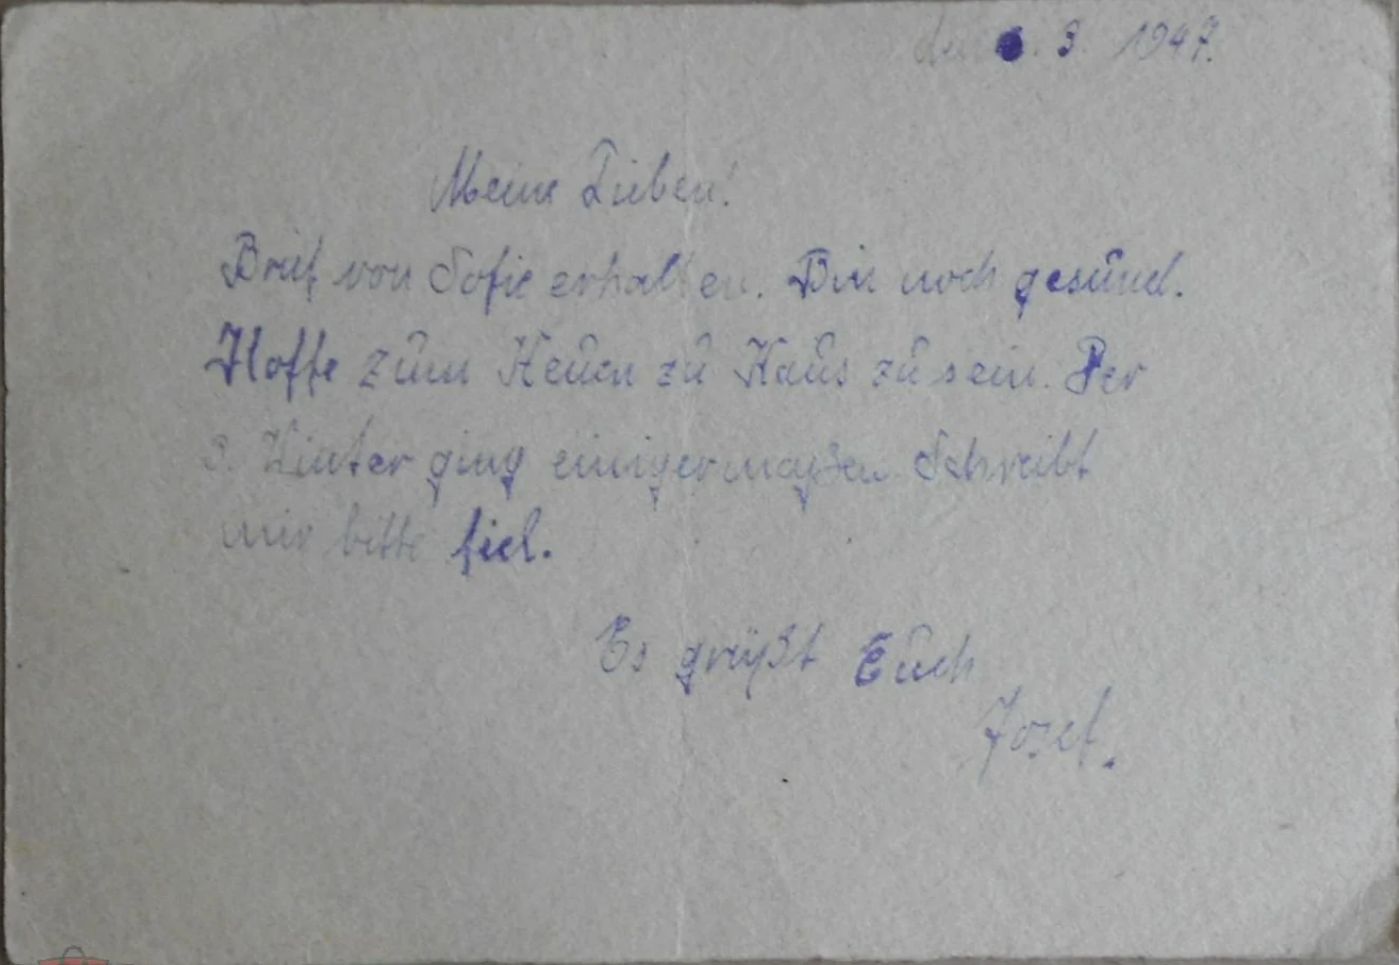 den . 3. 1947.
Meine Lieben!
Brief von Sofie erhalten. Bin noch gesund.
Hoffe zum Heuen zu Haus zu sein. Der
3. Winter ging einigermaßen Schreibt
mir bitte fiel.
Es grüßt Euch
Josef.